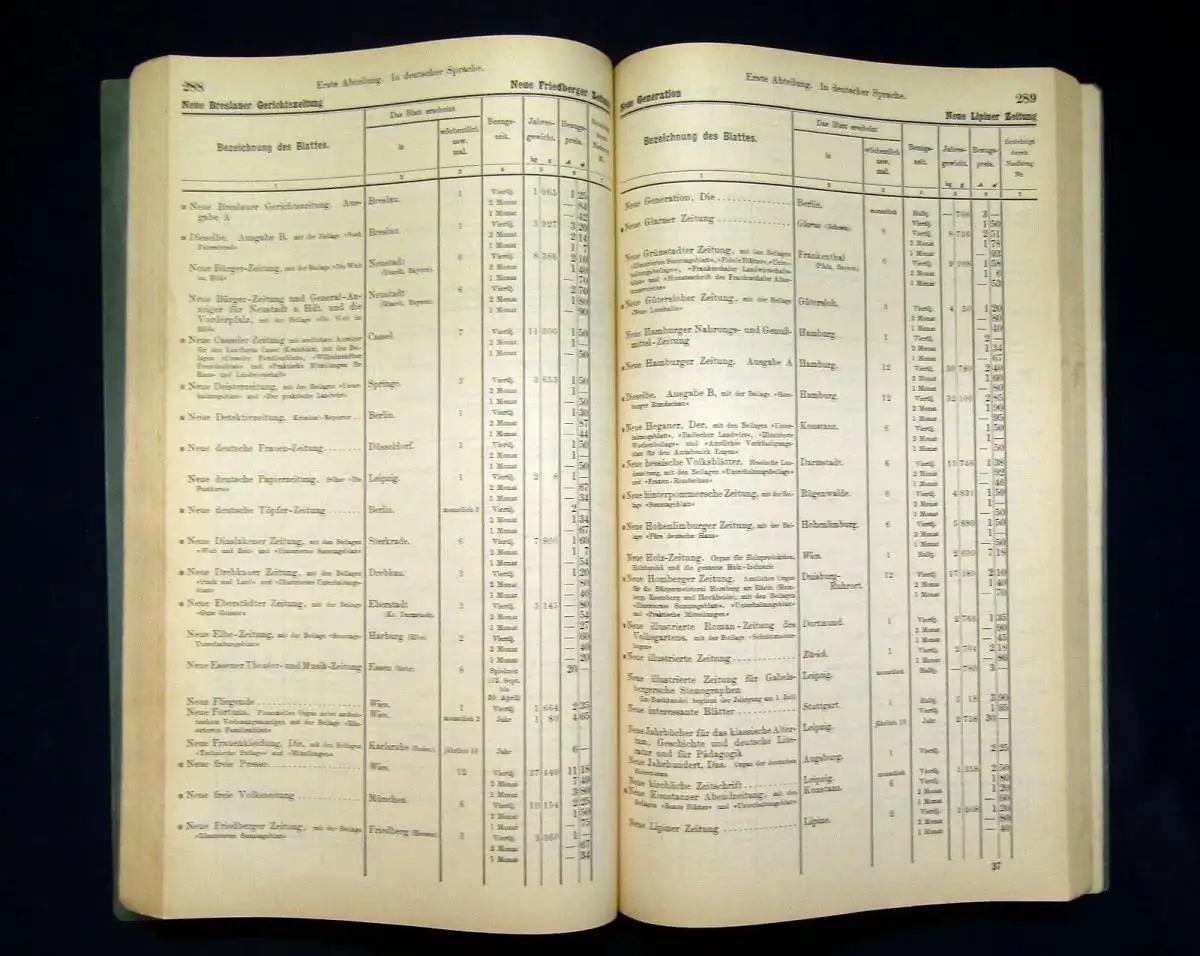 288
Erste Abteilung. In deutscher Sprache.
Neue Breslauer Gerichtszeitung
Neue Friedberger Zeitung
Bezeichnung des Blattes.
Das Blatt erscheint
in
wöchentlich
usw.
mal.
Bezugs-
zeit.
Jahres-
gewicht.
Bezugs-
preis.
kg g
1 2 3 4 5 6 7
Neue Breslauer Gerichtszeitung. Aus-
gabe A
Breslau.
1
Viertlj.
2 Monat
1 Monat
1 965
1 25
— 84
— 42
Dieselbe. Ausgabe B, mit der Beilage
Breslau.
1
Viertlj.
2 Monat
1 Monat
3 927
3 20
2 14
1 7
Neue Bürger-Zeitung, mit der Beilage »Die Welt
im Bild«
Neustadt
Viertlj.
2 Monat
1 Monat
8 386
2 10
1 40
— 70
Neue Bürger-Zeitung und General-An-
zeiger für Neustadt a. Hdt. und die
Vorderpfalz, mit der Beilage »Die Welt im
Bild«
Neustadt
6
Viertlj.
2 Monat
1 Monat
2 70
1 80
— 90
Neue Casseler Zeitung mit amtlichem Anzeiger
für den Landkreis Cassel
Cassel.
7
Viertlj.
2 Monat
1 Monat
1 50
1 —
— 50
Neue Deisterzeitung, mit den Beilagen »Unter-
haltungsblatt« und »Der praktische Landwirt«
Springe.
3
Viertlj.
2 Monat
1 Monat
3 653
1 50
1 —
— 50
Neue Detektivzeitung. Kriminal-Reporter
Berlin.
1
Viertlj.
2 Monat
1 Monat
1 30
— 87
— 44
Neue deutsche Frauen-Zeitung
Düsseldorf.
1
Viertlj.
2 Monat
1 Monat
1 50
1 —
— 50
Neue deutsche Papierzeitung.
Leipzig.
1
Viertlj.
2 Monat
1 Monat
2 8
1 —
— 67
— 34
Neue deutsche Töpfer-Zeitung
Berlin.
monatlich 2
Viertlj.
2 Monat
1 Monat
2 —
1 34
— 67
Neue Dinslakener Zeitung, mit den Beilagen
»Welt und Zeit« und »Illustriertes Sonntagsblatt«
Sterkrade.
6
Viertlj.
2 Monat
1 Monat
1 60
1 7
— 54
Neue Drebkauer Zeitung, mit den Beilagen
»Stadt und Land« und »Illustriertes Unterhaltungs-
blatt«
Drebkau.
3
Viertlj.
2 Monat
1 Monat
1 20
— 80
— 40
Neue Eberstädter Zeitung, mit der Beilage
Eberstadt
(Kr. Darmstadt).
Viertlj.
2 Monat
1 Monat
3 145
— 80
— 54
— 27
Neue Elbe-Zeitung, mit der Beilage »Sonntags-
Unterhaltungsblatt«
Harburg (Elbe).
2
Viertlj.
2 Monat
1 Monat
— 60
— 40
— 20
Neue Essener Theater- und Musik-Zeitung
Essen (Ruhr).
Spielzeit
(12. Sept.
bis
30. April)
20 —
Neue Fliegende
Wien.
1
Viertlj.
1 664
2 35
Neue Fortuna.
Wien.
monatlich 2
Jahr
1 80
4 65
Neue Frauenkleidung, Die, mit den Beilagen
Karlsruhe (Baden).
jährlich 10
Jahr
6 —
Neue freie Presse
Wien.
12
Viertlj.
2 Monat
1 Monat
37 440
11 18
7 49
3 80
Neue freie Volkszeitung
München.
6
Viertlj.
2 Monat
1 Monat
10 154
2 25
1 50
— 75
Neue Friedberger Zeitung, mit der Beilage
»Illustriertes Sonntagsblatt«
Friedberg (Hessen).
3
Viertlj.
2 Monat
1 Monat
1 —
— 67
— 34
Erste Abteilung. In deutscher Sprache.
289
Neue Generation
Neue Lipiner Zeitung
Bezeichnung des Blattes.
Das Blatt erscheint
in
wöchentlich
usw.
mal.
Bezugs-
zeit.
Jahres-
gewicht.
Bezugs-
preis.
Berichtigt
durch
Nachtrag
Nr.
kg g
1 2 3 4 5 6 7
Neue Generation, Die
Berlin.
monatlich
Halbj.
— 708
3 —
Neue Glarner Zeitung
Glarus (Schweiz).
6
Viertlj.
2 Monat
1 Monat
Neue Grünstadter Zeitung, mit den Beilagen
Frankenthal
(Pfalz, Bayern).
6
Viertlj.
2 Monat
1 Monat
1 58
1 6
— 53
Neue Gütersloher Zeitung, mit der Beilage
Gütersloh.
3
Viertlj.
2 Monat
1 Monat
4 50
1 20
— 80
— 40
Neue Hamburger Nahrungs- und Genuß-
mittel-Zeitung
Hamburg.
1
Viertlj.
2 Monat
1 Monat
2 —
1 34
— 67
Neue Hamburger Zeitung. Ausgabe A
Hamburg.
12
Viertlj.
2 Monat
1 Monat
30 780
2 40
1 60
— 80
Dieselbe. Ausgabe B, mit der Beilage »Ham-
burger Rundschau«
Hamburg.
12
Viertlj.
2 Monat
1 Monat
32 100
2 85
1 90
— 95
Neue Hegauer, Der, mit den Beilagen »Unter-
haltungsblatt«, »Badischer Landwirt«, »Illustrierte
Wochenbeilage« und »Amtliches Verkündigungs-
blatt für den Amtsbezirk Engen«
Konstanz.
6
Viertlj.
2 Monat
1 Monat
1 50
1 —
— 50
Neue hessische Volksblätter. Hessische Lan-
deszeitung, mit den Beilagen »Unterhaltungsbeilage«
und »Frauen-Rundschau«
Darmstadt.
6
Viertlj.
2 Monat
1 Monat
15 748
1 38
— 92
— 46
Neue hinterpommersche Zeitung, mit der Bei-
lage »Sonntagsblatt«
Rügenwalde.
6
Viertlj.
2 Monat
1 Monat
4 831
1 50
1 —
— 50
Neue Hohenlimburger Zeitung, mit der Bei-
lage »Fürs deutsche Haus«
Hohenlimburg.
6
Viertlj.
2 Monat
1 Monat
5 880
1 50
1 —
— 50
Neue Holz-Zeitung. Organ für Holzproduktion,
Holzhandel und die gesamte Holz-Industrie
Wien.
1
Halbj.
2 600
7 18
Neue Homberger Zeitung. Amtliches Organ
für die Bürgermeisterei Homberg am Rhein
Duisburg-
Ruhrort.
12
Viertlj.
2 Monat
1 Monat
17 180
2 10
1 40
— 70
Neue illustrierte Roman-Zeitung des
Volksgartens, mit der Beilage
Dortmund.
1
Viertlj.
2 Monat
1 Monat
2 766
1 35
— 90
— 45
Neue illustrierte Zeitung
Zürich.
1
Viertlj.
2 704
2 18
Neue illustrierte Zeitung für Gabels-
bergersche Stenographen
(Im Buchhandel beginnt der Jahrgang am 1. Juli)
Leipzig.
monatlich
Halbj.
— 780
3 —
Neue interessante Blätter
Stuttgart.
1
Halbj.
Viertlj.
5 18
3 90
1 95
Neue Jahrbücher für das klassische Alter-
tum, Geschichte und deutsche Lite-
ratur und für Pädagogik
Leipzig.
jährlich 10
Jahr
2 758
30 —
Neue Jahrhundert, Das. Organ der deutschen
Modernisten
Augsburg.
1
Viertlj.
2 25
Neue kirchliche Zeitschrift
Leipzig.
monatlich
Viertlj.
2 50
Neue Konstanzer Abendzeitung, mit den
Beilagen »Bunte Blätter« und »Unterhaltungsblatt«
Konstanz.
6
Viertlj.
2 Monat
1 Monat
1 80
1 20
— 60
Neue Lipiner Zeitung
Lipine.
2
Viertlj.
2 Monat
1 Monat
1 20
— 80
— 40
37